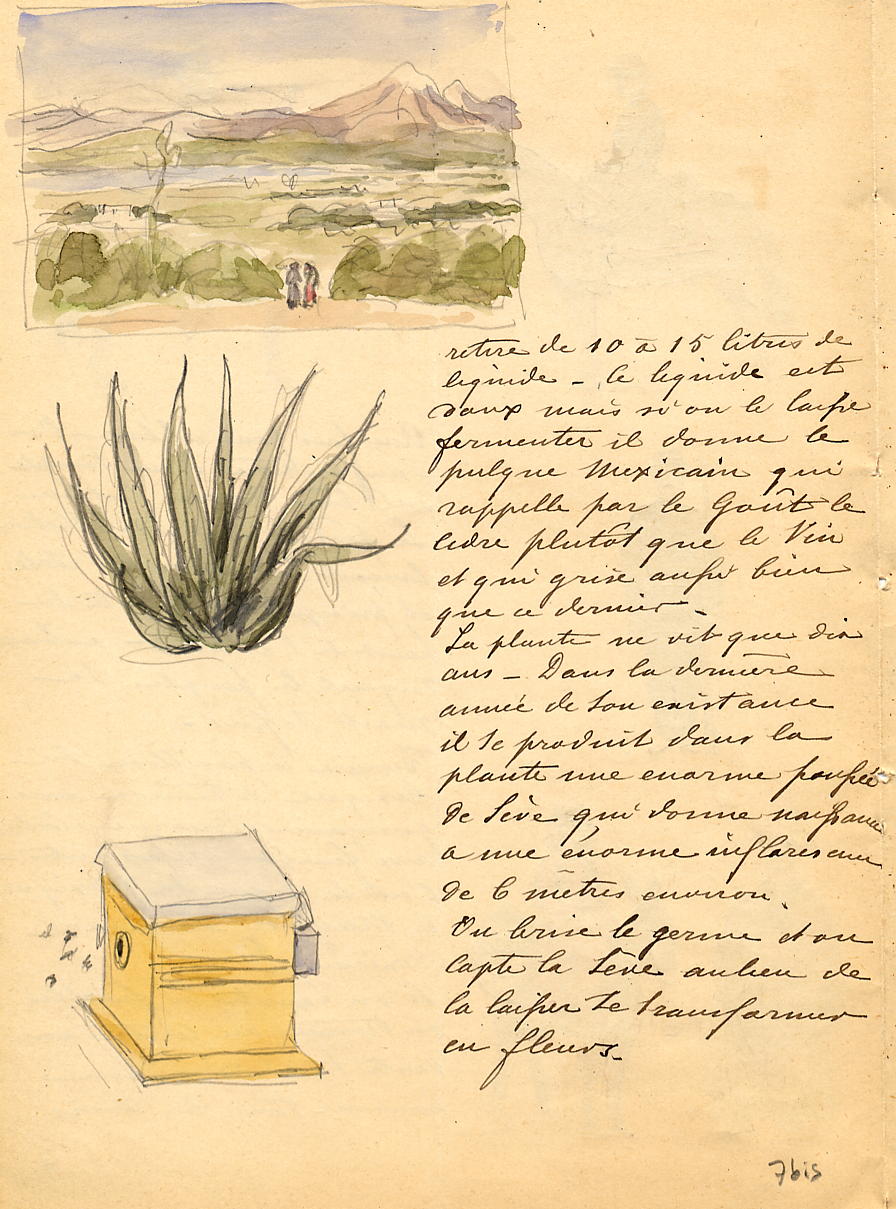 retire de 10 à 15 litres de
liquide - le liquide est
doux mais si on le laisse
fermenter il donne le
pulque Mexicain qui
rappelle par le Goût le
cidre plutôt que le Vin
et qui grise aussi bien
que ce dernier -
La plante ne vit que dix
ans - Dans la dernière
année de son existance
il se produit dans la
plante une enorme poussée
de Sève qui donne naissance
a une énorme inflorescence
de 6 mètres environ.
On brise le germe et on
capte la Sève au lieu de
la laisser se transformer
en fleurs.
7bis